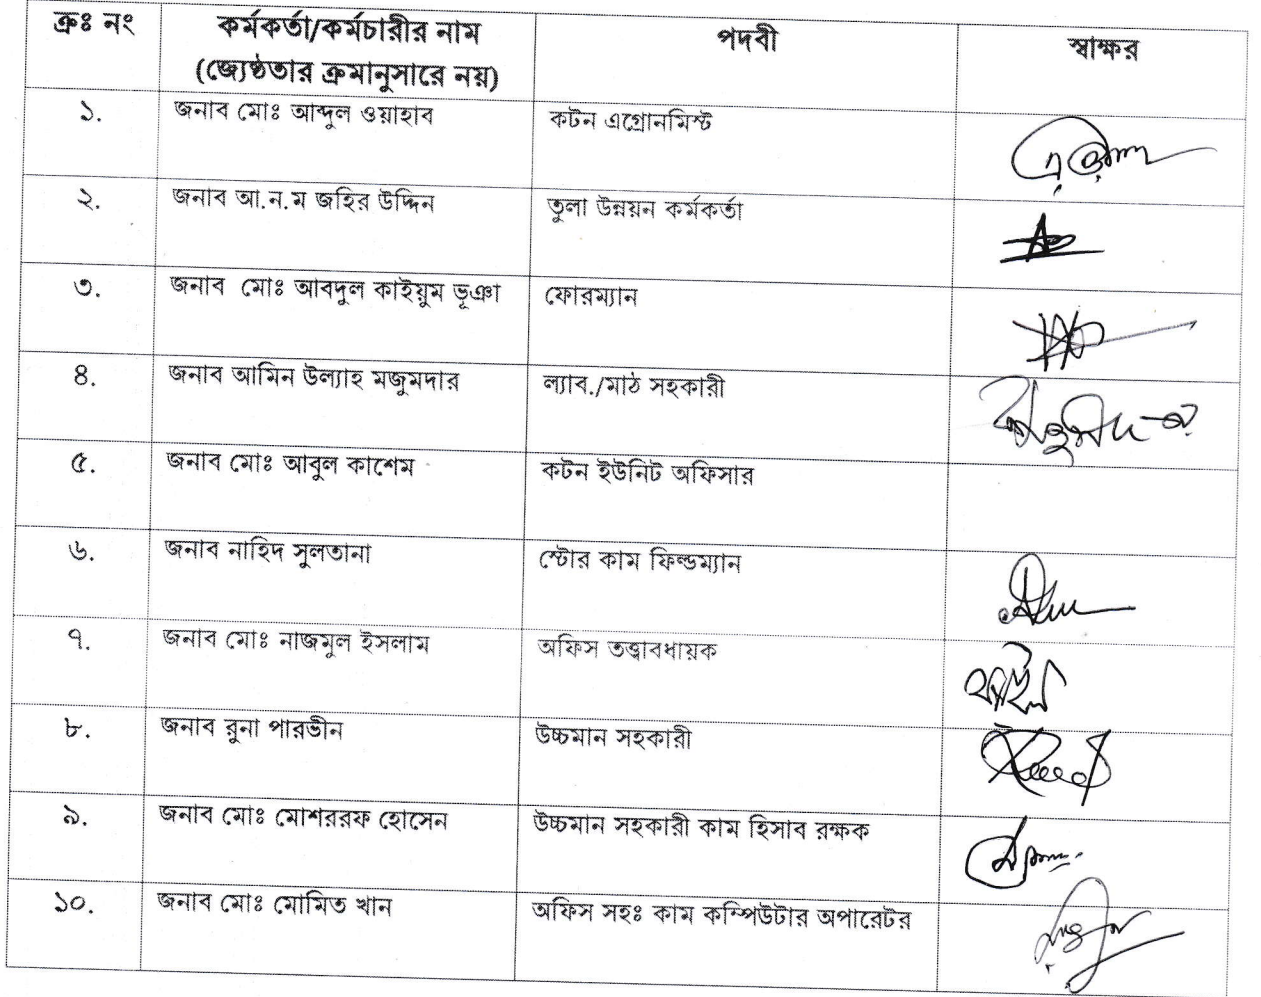 ক্রঃ নং কর্মকর্তা/কর্মচারীর নাম পদবী স্বাক্ষর
(জ্যেষ্ঠতার ক্রমানুসারে নয়)
১. জনাব মোঃ আব্দুল ওয়াহাব কটন এগ্রোনমিস্ট
২. জনাব আ.ন.ম জহির উদ্দিন তুলা উন্নয়ন কর্মকর্তা
৩. জনাব মোঃ আবদুল কাইয়ুম ভূঞা ফোরম্যান
৪. জনাব আমিন উল্যাহ মজুমদার ল্যাব./মাঠ সহকারী
৫. জনাব মোঃ আবুল কাশেম কটন ইউনিট অফিসার
৬. জনাব নাহিদ সুলতানা স্টোর কাম ফিল্ডম্যান
৭. জনাব মোঃ নাজমুল ইসলাম অফিস তত্ত্বাবধায়ক
৮. জনাব রুনা পারভীন উচ্চমান সহকারী
৯. জনাব মোঃ মোশররফ হোসেন উচ্চমান সহকারী কাম হিসাব রক্ষক
১০. জনাব মোঃ মোমিত খান অফিস সহঃ কাম কম্পিউটার অপারেটর